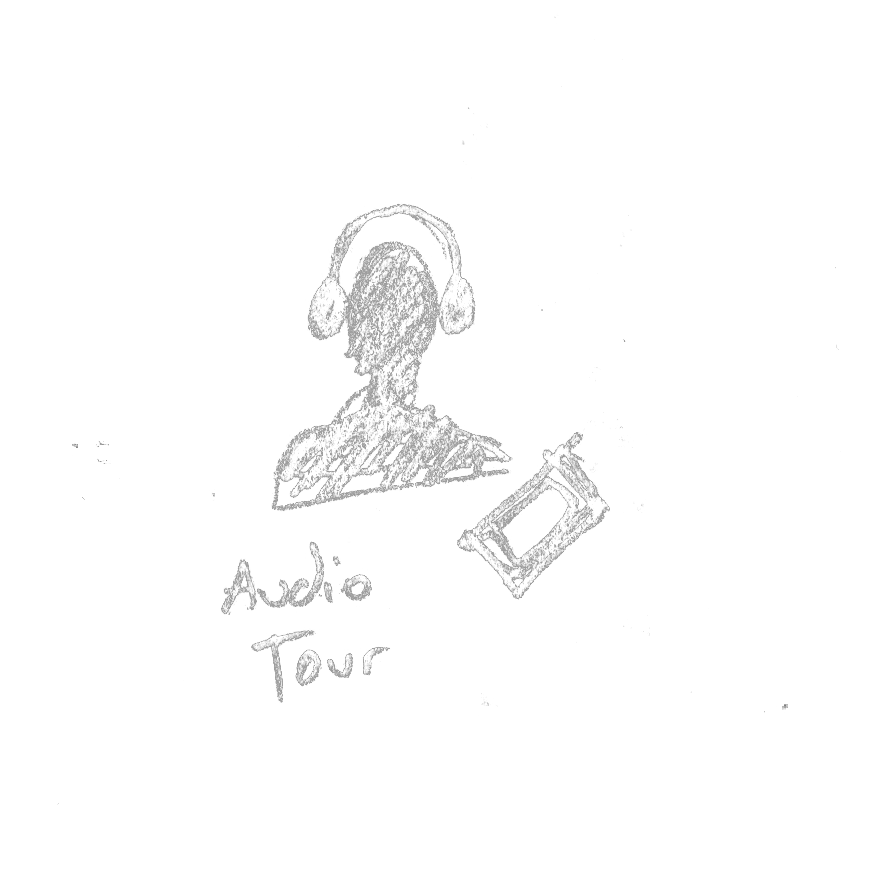 Audio
Tour